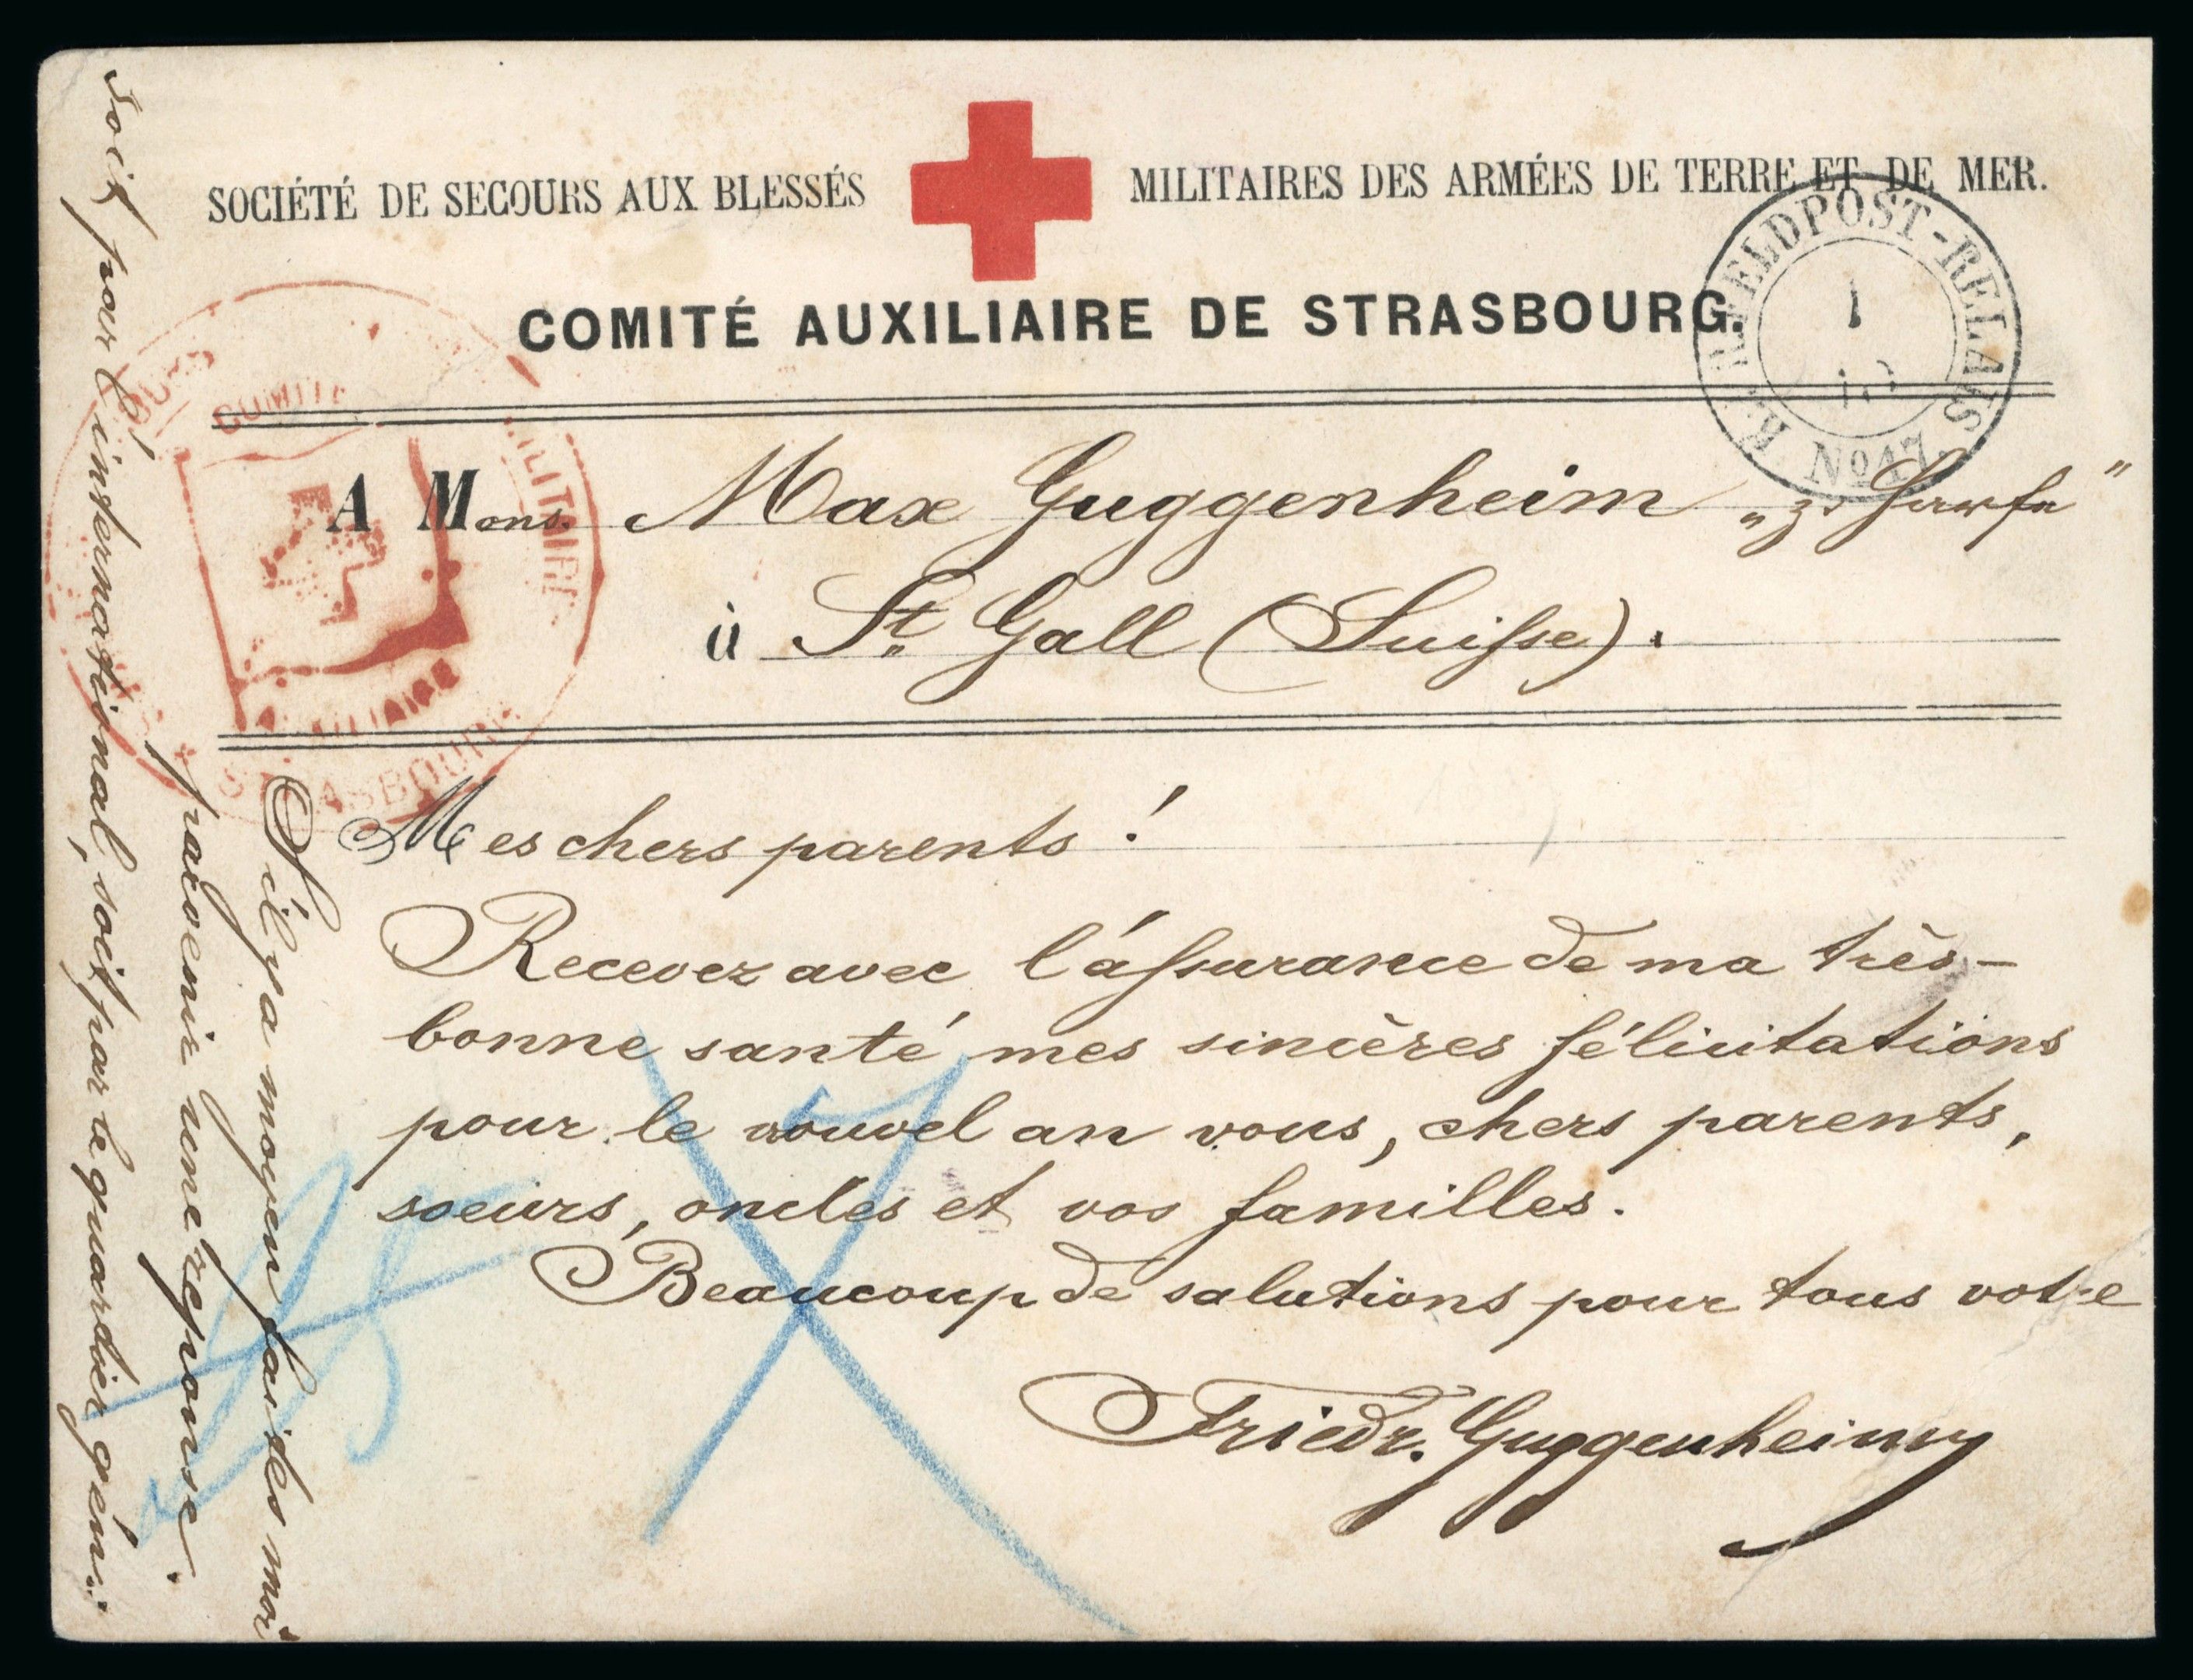 SOCIÉTÉ DE SECOURS AUX BLESSÉS MILITAIRES DES ARMÉES DE TERRE ET DE MER.
COMITÉ AUXILIAIRE DE STRASBOURG.
K. PR. FELDPOST-RELAIS No 47.
1
10
COMITÉ
MILITAIRE
AUXILIAIRE
STRASBOURG
A Mons. Max Guggenheim „z.
à St. Gall (Suisse).
Mes chers parents!
Recevez avec l'ássurance de ma très-
bonne santé mes sincères félicitations
pour le nouvel an vous, chers parents,
soeurs, oncles et vos familles.
Beaucoup de salutions pour tous votre
Friedr. Guggenheim
S'il y a moyen faites moi
parvenir une réponse.
soit pour l'international, soit par le quardier géni.